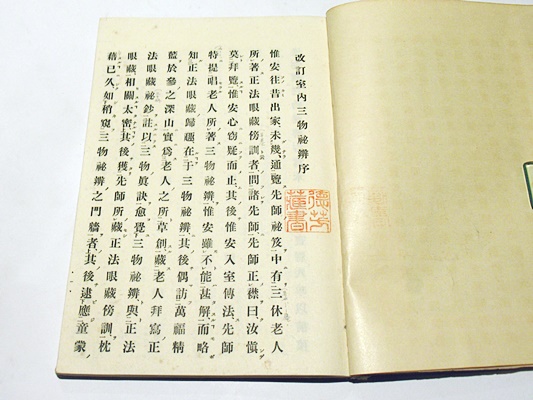 改訂室內三物祕辨序
惟安往昔出家未幾通覽先師祕笈中有三休老人
所著正法眼藏傍訓者問諸先師先師正襟曰汝愼
莫拜覽惟安心窃疑而止其後惟安入室傳法先師
特提唱老人所著三物祕辨惟安雖不能甚解而略
知正法眼藏歸趣在于三物祕辨其後偶訪萬福精
藍於參之深山實爲老人之所草創藏老人拜寫正
法眼藏祕鈔註以三物眞訣愈覺三物祕辨與正法
眼藏相關太密其後獲先師所藏正法眼藏傍訓枕
藉已久如稍窺三物祕辨之門牆者其後逮應童蒙
德芳
藏書